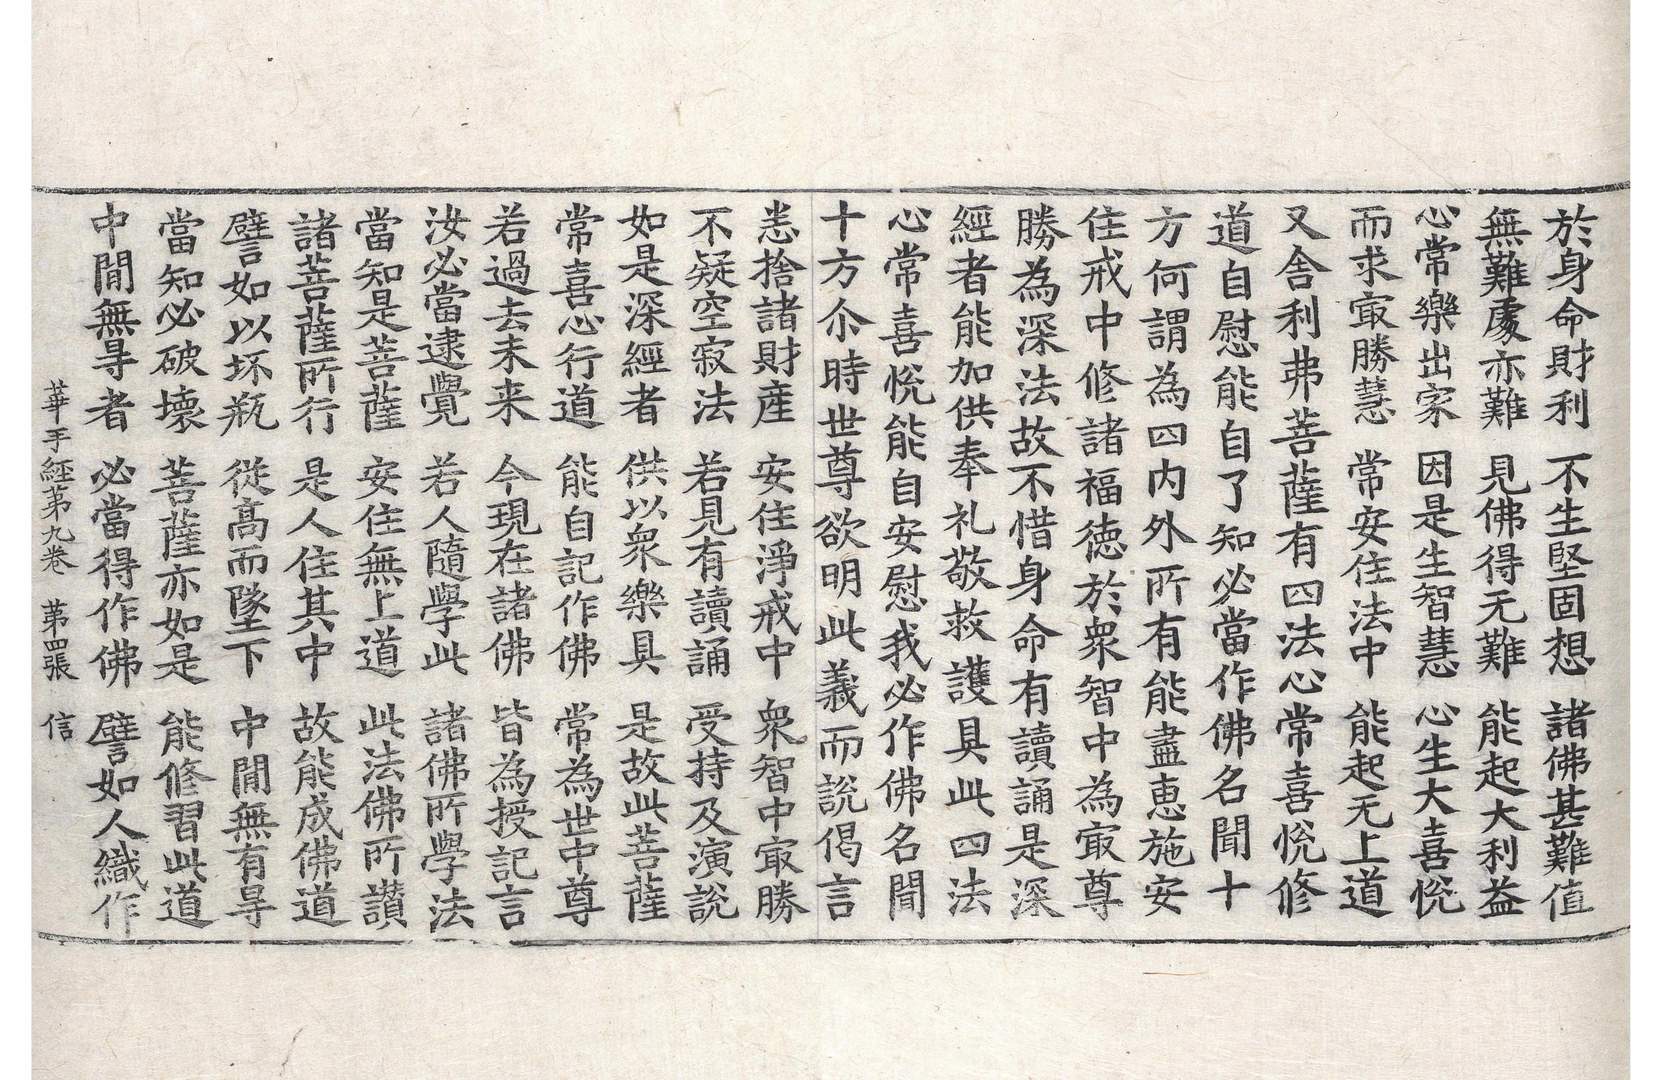 於身命財利　不生堅固想　諸佛甚難值
無難處亦難　見佛得无難　能起大利益
心常樂出家　因是生智慧　心生大喜悅
而求㝡勝慧　常安住法中　能起无上道
又舍利弗菩薩有四法心常喜悅修
道自慰能自了知必當作佛名聞十
方何謂為四內外所有能盡恵施安
住戒中修諸福徳於衆智中為㝡尊
勝為深法故不惜身命有讀誦是深
經者能加供奉礼敬救護具此四法
心常喜悅能自安慰我必作佛名聞
十方尒時世尊欲明此義而說偈言
悉捨諸財産　安住淨戒中　衆智中㝡勝
不疑空寂法　若見有讀誦　受持及演說
如是深經者　供以衆樂具　是故此菩薩
常喜心行道　能自記作佛　常為世中尊
若過去未来　今現在諸佛　皆為授記言
汝必當逮覺　若人隨學此　諸佛所學法
當知是菩薩　安住無上道　此法佛所讃
諸菩薩所行　是人住其中　故能成佛道
譬如以坏瓶　從髙而墜下　中閒無有㝵
當知必破壞　菩薩亦如是　能修習此道
中閒無㝵者　必當得作佛　譬如人織作
華手經第九卷　第四張　信